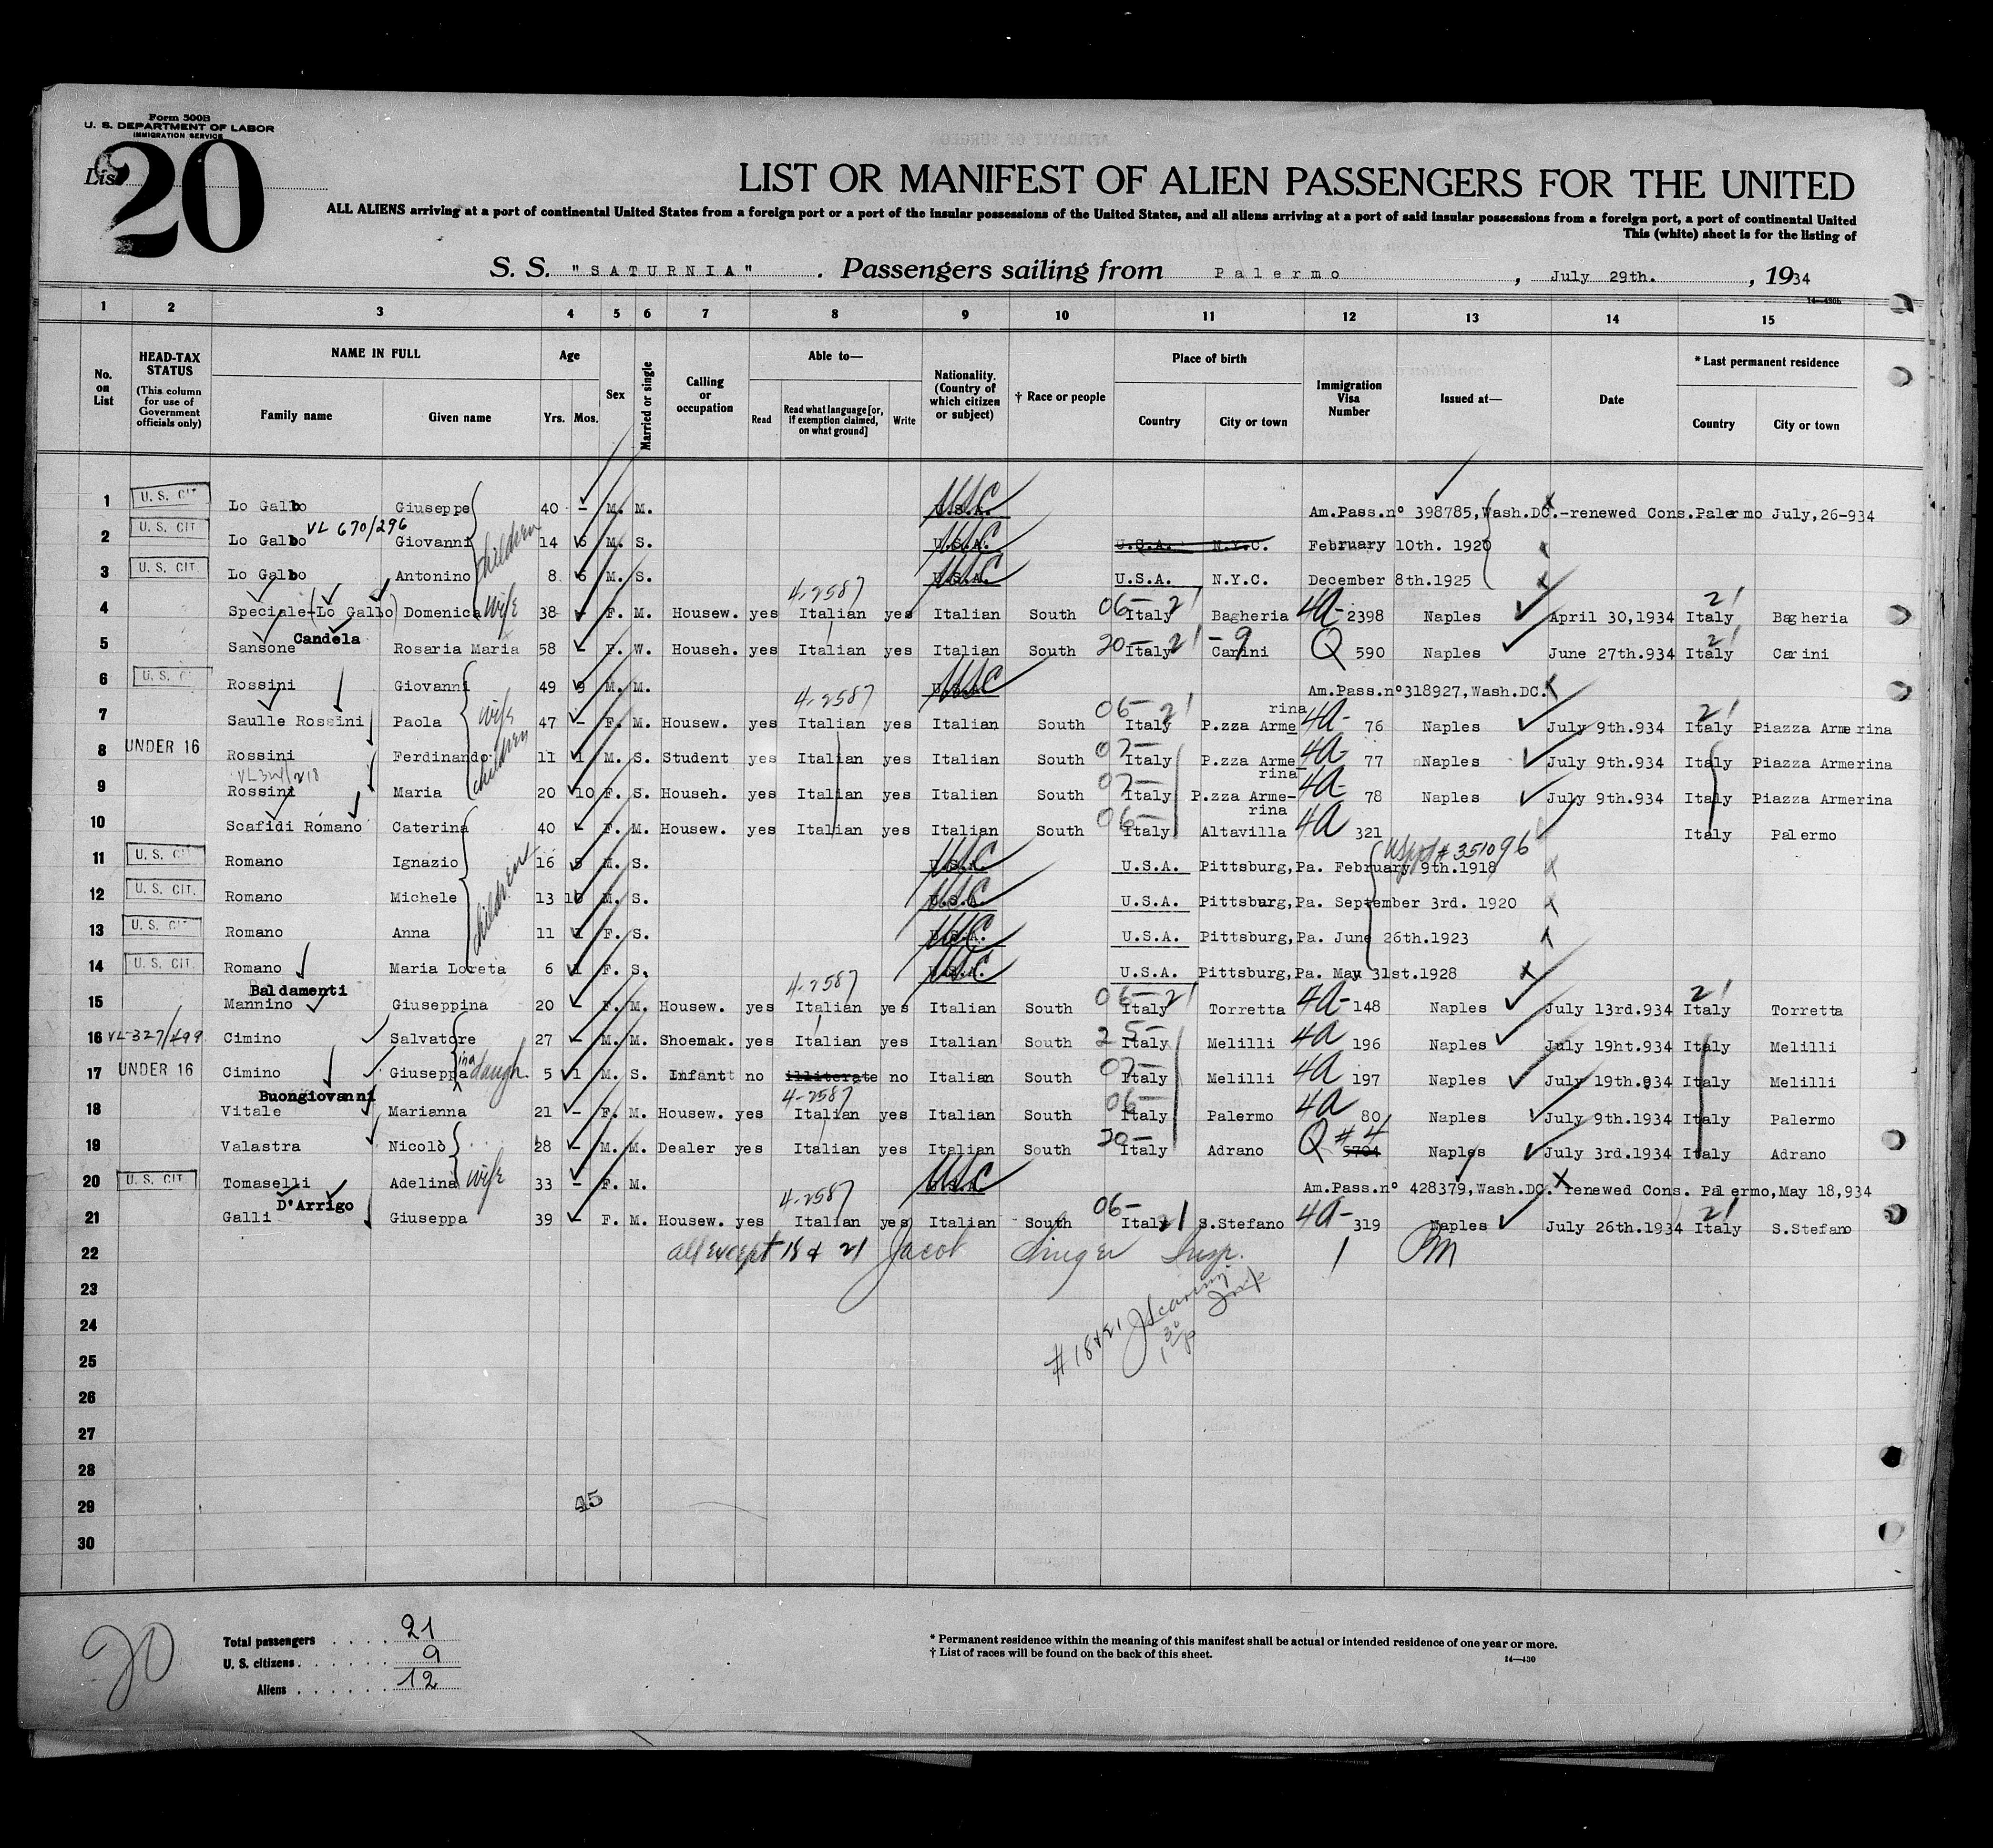 Form 500B
U. S. DEPARTMENT OF LABOR
IMMIGRATION SERVICE
List 20
LIST OR MANIFEST OF ALIEN PASSENGERS FOR THE UNITED
ALL ALIENS arriving at a port of continental United States from a foreign port or a port of the insular possessions of the United States, and all aliens arriving at a port of said insular possessions from a foreign port, a port of continental United
This (white) sheet is for the listing of
S. S. "SATURNIA". Passengers sailing from Palermo, July 29th., 1934
14—430b
1 2 3 4 5 6 7 8 9 10 11 12 13 14 15
No. on List
HEAD-TAX STATUS (This column for use of Government officials only)
NAME IN FULL Family name Given name
Age Yrs. Mos.
Sex
Married or single
Calling or occupation
Able to— Read Read what language [or, if exemption claimed, on what ground] Write
Nationality. (Country of which citizen or subject)
† Race or people
Place of birth Country City or town
Immigration Visa Number
Issued at—
Date
* Last permanent residence Country City or town
1 U. S. CIT Lo Galbo Giuseppe 40 - M. M. U.S.A. USC Am.Pass.n° 398785,Wash.DC.-renewed Cons.Palermo July,26-934
VL 670/296
2 U. S. CIT Lo Galbo Giovanni children 14 6 M. S. U.S.A. USC U.S.A. N.Y.C. February 10th. 1920
3 U. S. CIT. Lo Galbo Antonino 8 6 M. S. U.S.A. USC U.S.A. N.Y.C. December 8th.1925
4-2587
4 Speciale-(Lo Gallo) Domenica wife 38 - F. M. Housew. yes Italian yes Italian South 06- Italy 21 Bagheria 4A- 2398 Naples April 30,1934 Italy 21 Bagheria
Candela
5 Sansone Rosaria Maria 58 - F. W. Househ. yes Italian yes Italian South 20- Italy 21 - 9 Carini Q 590 Naples June 27th.934 Italy 21 Carini
6 U. S. C Rossini Giovanni 49 9 M. M. U.S.A. USC Am.Pass.n°318927,Wash.DC.
4-2587
7 Saulle Rossini Paola wife 47 - F. M. Housew. yes Italian yes Italian South 06- Italy 21 P.zza Armerina 4A- 76 Naples July 9th.934 Italy 21 Piazza Armerina
8 UNDER 16 Rossini Ferdinando children 11 1 M. S. Student yes Italian yes Italian South 07- Italy P.zza Armerina 4A- 77 Naples July 9th.934 Italy Piazza Armerina
9 Rossini Maria 20 10 F. S. Househ. yes Italian yes Italian South 07- Italy P.zza Arme-rina 4A- 78 Naples July 9th.934 Italy Piazza Armerina
10 Scafidi Romano Caterina 40 - F. M. Housew. yes Italian yes Italian South 06- Italy Altavilla 4A 321 Italy Palermo
351096
11 U. S. CIT Romano Ignazio children 16 5 M. S. U.S.A. USC U.S.A. Pittsburg,Pa. February 9th.1918
12 U. S. CIT. Romano Michele 13 10 M. S. U.S.A. USC U.S.A. Pittsburg,Pa. September 3rd. 1920
13 U. S. CIT. Romano Anna 11 1 F. S. U.S.A. USC U.S.A. Pittsburg,Pa. June 26th.1923
14 U. S. CIT. Romano Maria Loreta 6 1 F. S. U.S.A. USC U.S.A. Pittsburg,Pa. May 31st.1928
Baldamenti 4-2587
15 Mannino Giuseppina 20 - F. M. Housew. yes Italian yes Italian South 06- Italy 21 Torretta 4A- 148 Naples July 13rd.934 Italy 21 Torretta
16 VL-327/499 Cimino Salvatore 27 - M. M. Shoemak. yes Italian yes Italian South 25- Italy Melilli 4A 196 Naples July 19ht.934 Italy Melilli
17 UNDER 16 Cimino Giuseppa ina daugh. 5 1 M. S. Infantt no illiterate no Italian South 07- Italy Melilli 4A 197 Naples July 19th.934 Italy Melilli
Buongiovanni 4-2587
18 Vitale Marianna 21 - F. M. Housew. yes Italian yes Italian South 06- Italy Palermo 4A 80 Naples July 9th.1934 Italy Palermo
19 Valastra Nicolò 28 - M. M. Dealer yes Italian yes Italian South 20- Italy Adrano Q #4 5704 Naples July 3rd.1934 Italy Adrano
20 U. S. CIT. Tomaselli Adelina wife 33 - F. M. U.S.A. USC Am.Pass.n° 428379,Wash.DC. renewed Cons. Palermo,May 18,934
D'Arrigo 4-2587
21 Galli Giuseppa 39 - F. M. Housew. yes Italian yes Italian South 06- Italy 21 S.Stefano 4A- 319 Naples July 26th.1934 Italy 21 S.Stefano
22 all except 18 & 21 Jacob Singer Insp. 1
23
24 #18 & 21
25
26
27
28
29 45
30
20
Total passengers . . . . 21
U. S. citizens . . . . . . 9
Aliens . . . . . . 12
* Permanent residence within the meaning of this manifest shall be actual or intended residence of one year or more.
† List of races will be found on the back of this sheet.
14—430